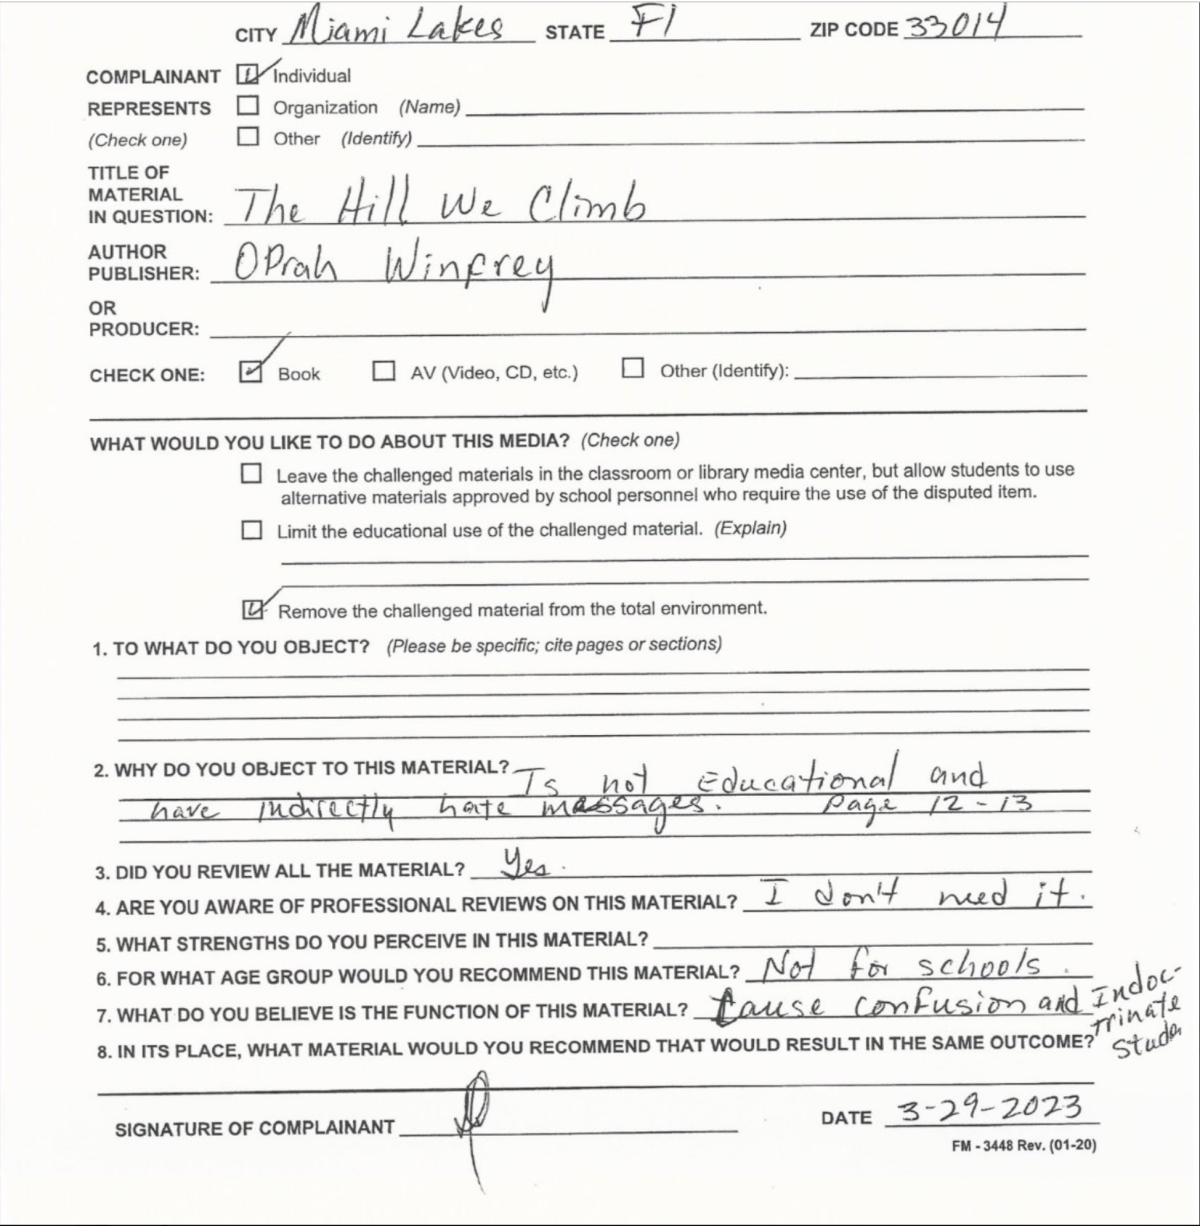 CITY Miami Lakes STATE Fl ZIP CODE 33014
COMPLAINANT Individual
REPRESENTS Organization (Name)
(Check one) Other (Identify)
TITLE OF
MATERIAL
IN QUESTION: The Hill We Climb
AUTHOR
PUBLISHER: Oprah Winfrey
OR
PRODUCER:
CHECK ONE: Book AV (Video, CD, etc.) Other (Identify):
WHAT WOULD YOU LIKE TO DO ABOUT THIS MEDIA? (Check one)
Leave the challenged materials in the classroom or library media center, but allow students to use
alternative materials approved by school personnel who require the use of the disputed item.
Limit the educational use of the challenged material. (Explain)
Remove the challenged material from the total environment.
1. TO WHAT DO YOU OBJECT? (Please be specific; cite pages or sections)
2. WHY DO YOU OBJECT TO THIS MATERIAL? Is not Educational and
have indirectly hate messages. Page 12-13
3. DID YOU REVIEW ALL THE MATERIAL? Yes.
4. ARE YOU AWARE OF PROFESSIONAL REVIEWS ON THIS MATERIAL? I don't need it.
5. WHAT STRENGTHS DO YOU PERCEIVE IN THIS MATERIAL?
6. FOR WHAT AGE GROUP WOULD YOU RECOMMEND THIS MATERIAL? Not for schools.
7. WHAT DO YOU BELIEVE IS THE FUNCTION OF THIS MATERIAL? Cause confusion and Indoc-
trinate
8. IN ITS PLACE, WHAT MATERIAL WOULD YOU RECOMMEND THAT WOULD RESULT IN THE SAME OUTCOME?
SIGNATURE OF COMPLAINANT DATE 3-29-2023
FM - 3448 Rev. (01-20)